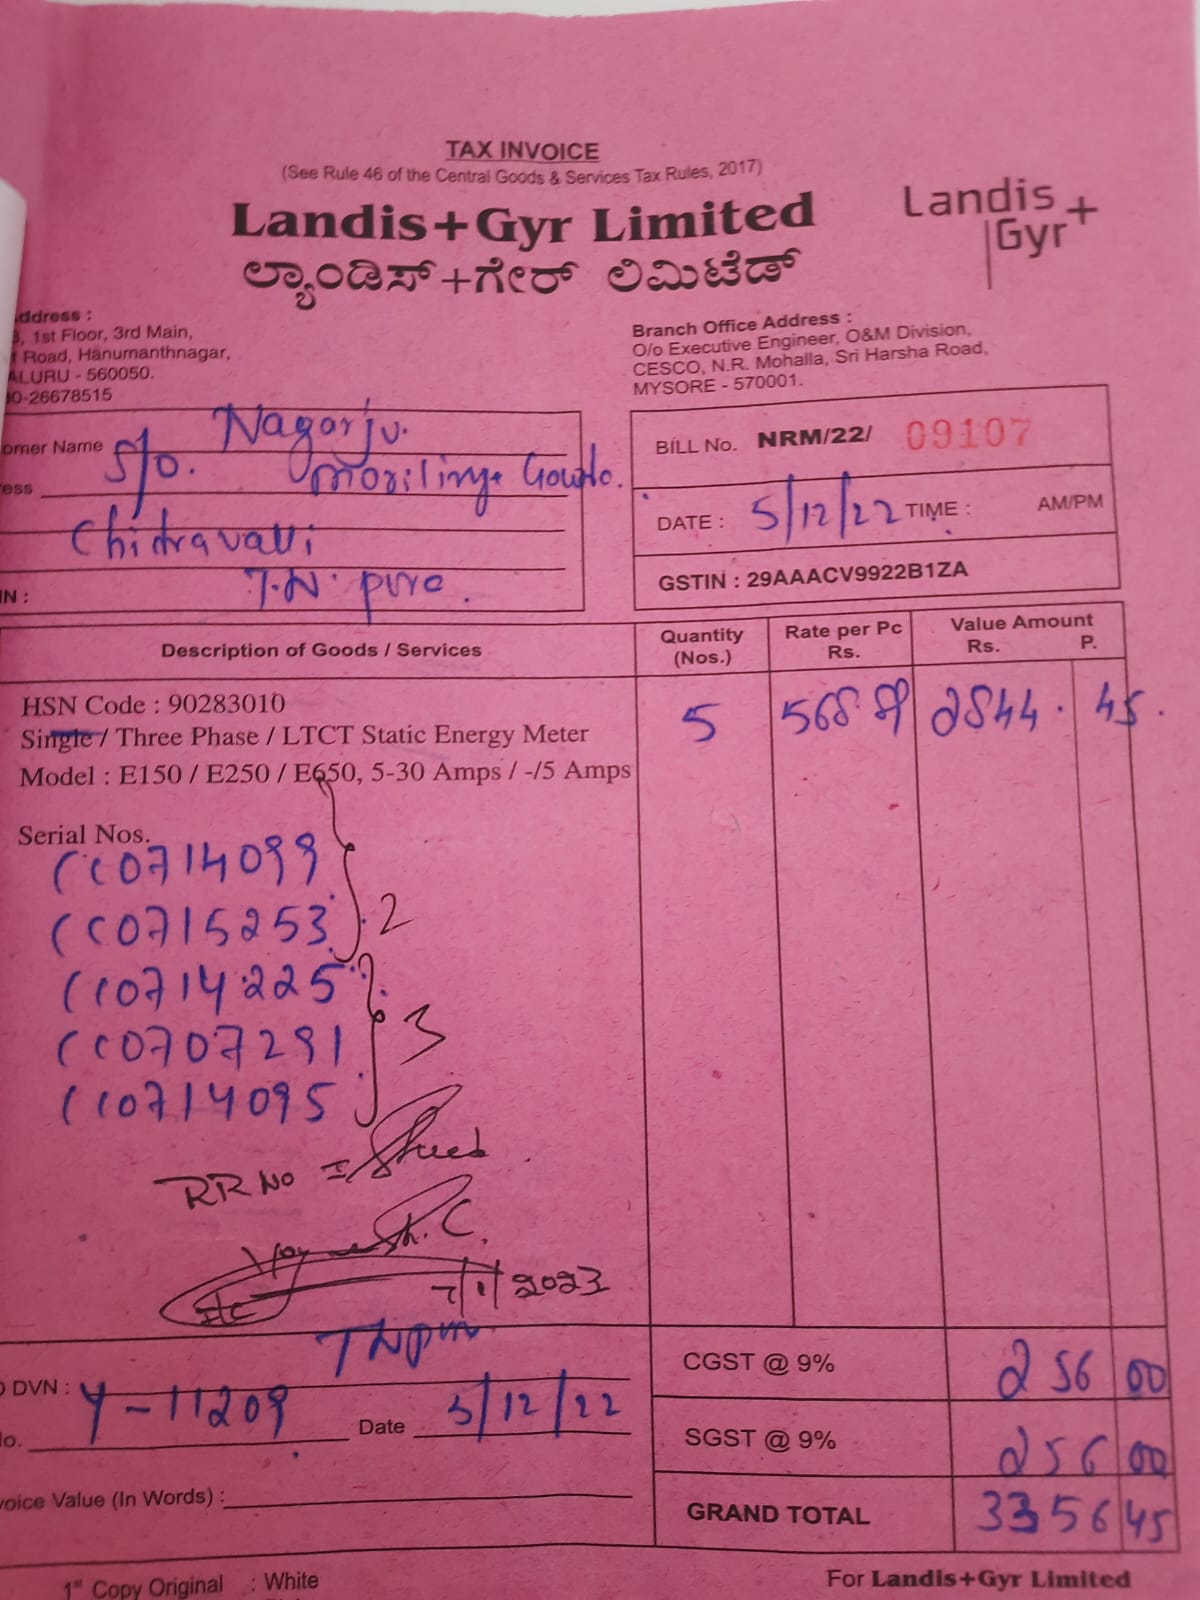 TAX INVOICE
(See Rule 46 of the Central Goods & Services Tax Rules, 2017)
Landis+Gyr Limited
ಲ್ಯಾಂಡಿಸ್+ಗೇರ್ ಲಿಮಿಟೆಡ್
Landis
Gyr+
ddress :
, 1st Floor, 3rd Main,
Road, Hanumanthnagar,
ALURU - 560050.
0-26678515
Branch Office Address :
O/o Executive Engineer, O&M Division,
CESCO, N.R. Mohalla, Sri Harsha Road,
MYSORE - 570001.
omer Name Nagorju.
ess S/o.
Chidravalli
IN : T.N. pure.
BILL No. NRM/22/ 09107
DATE : 5/12/22 TIME : AM/PM
GSTIN : 29AAACV9922B1ZA
Description of Goods / Services Quantity (Nos.) Rate per Pc Rs. Value Amount Rs. P.
HSN Code : 90283010 5 568.89 2844. 45.
Single / Three Phase / LTCT Static Energy Meter
Model : E150 / E250 / E650, 5-30 Amps / -/5 Amps
Serial Nos.
CC0714099
CC0715253 2
CC0714225
CC0707291 3
CC0714095
RR No
7/1/2023
TNpur
DVN :
Y-11209 Date 5/12/22
lo.
voice Value (In Words) :
CGST @ 9% 256 00
SGST @ 9% 256 00
GRAND TOTAL 3356 45
1st Copy Original : White
For Landis+Gyr Limited